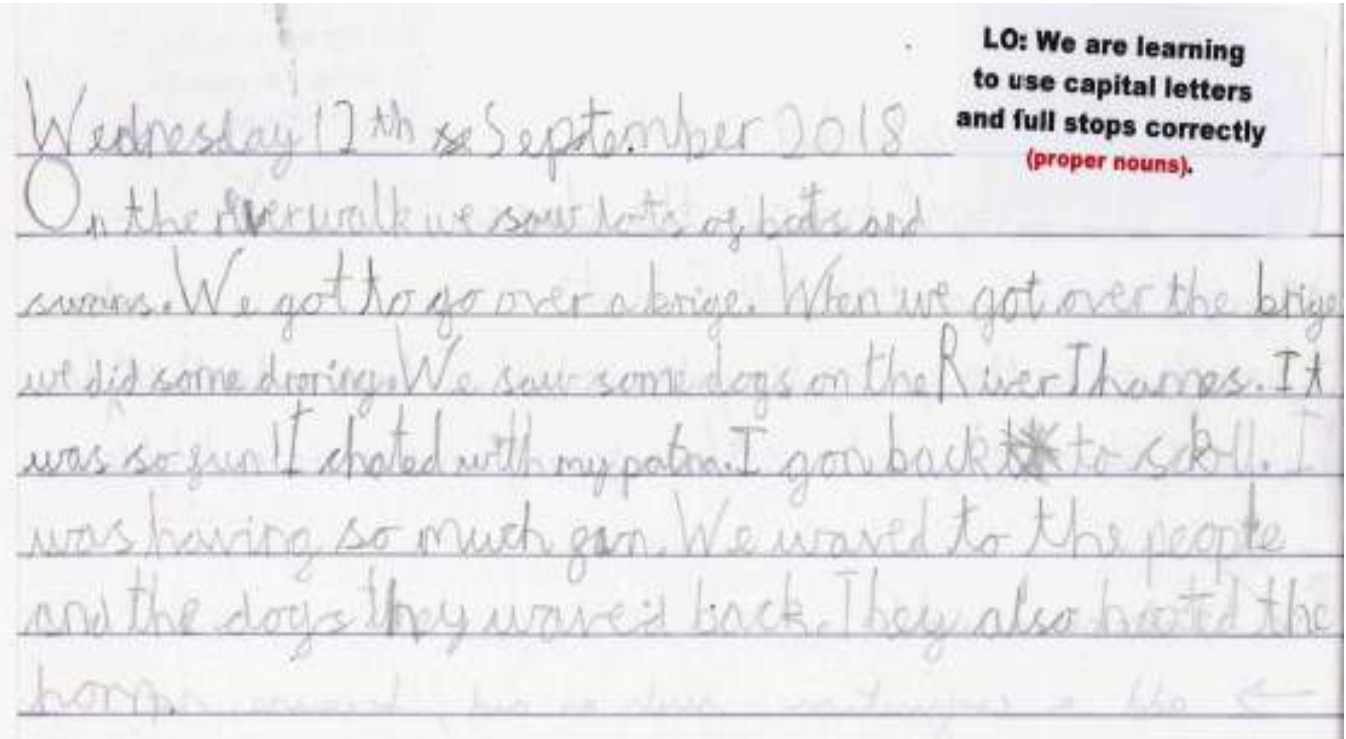 LO: We are learning
to use capital letters
and full stops correctly
(proper nouns).
Wednesday 12th September 2018
On the river walk we saw lots of bots and
swans. We got to go over a brige. When we got over the brige
we did some droring. We saw some dogs on the River Thames. It
was so fun! I chated with my patn. I gon back to scholl. I
was having so much fun. We waved to the people
and the dogs they waved back. They also hooted the
horn.